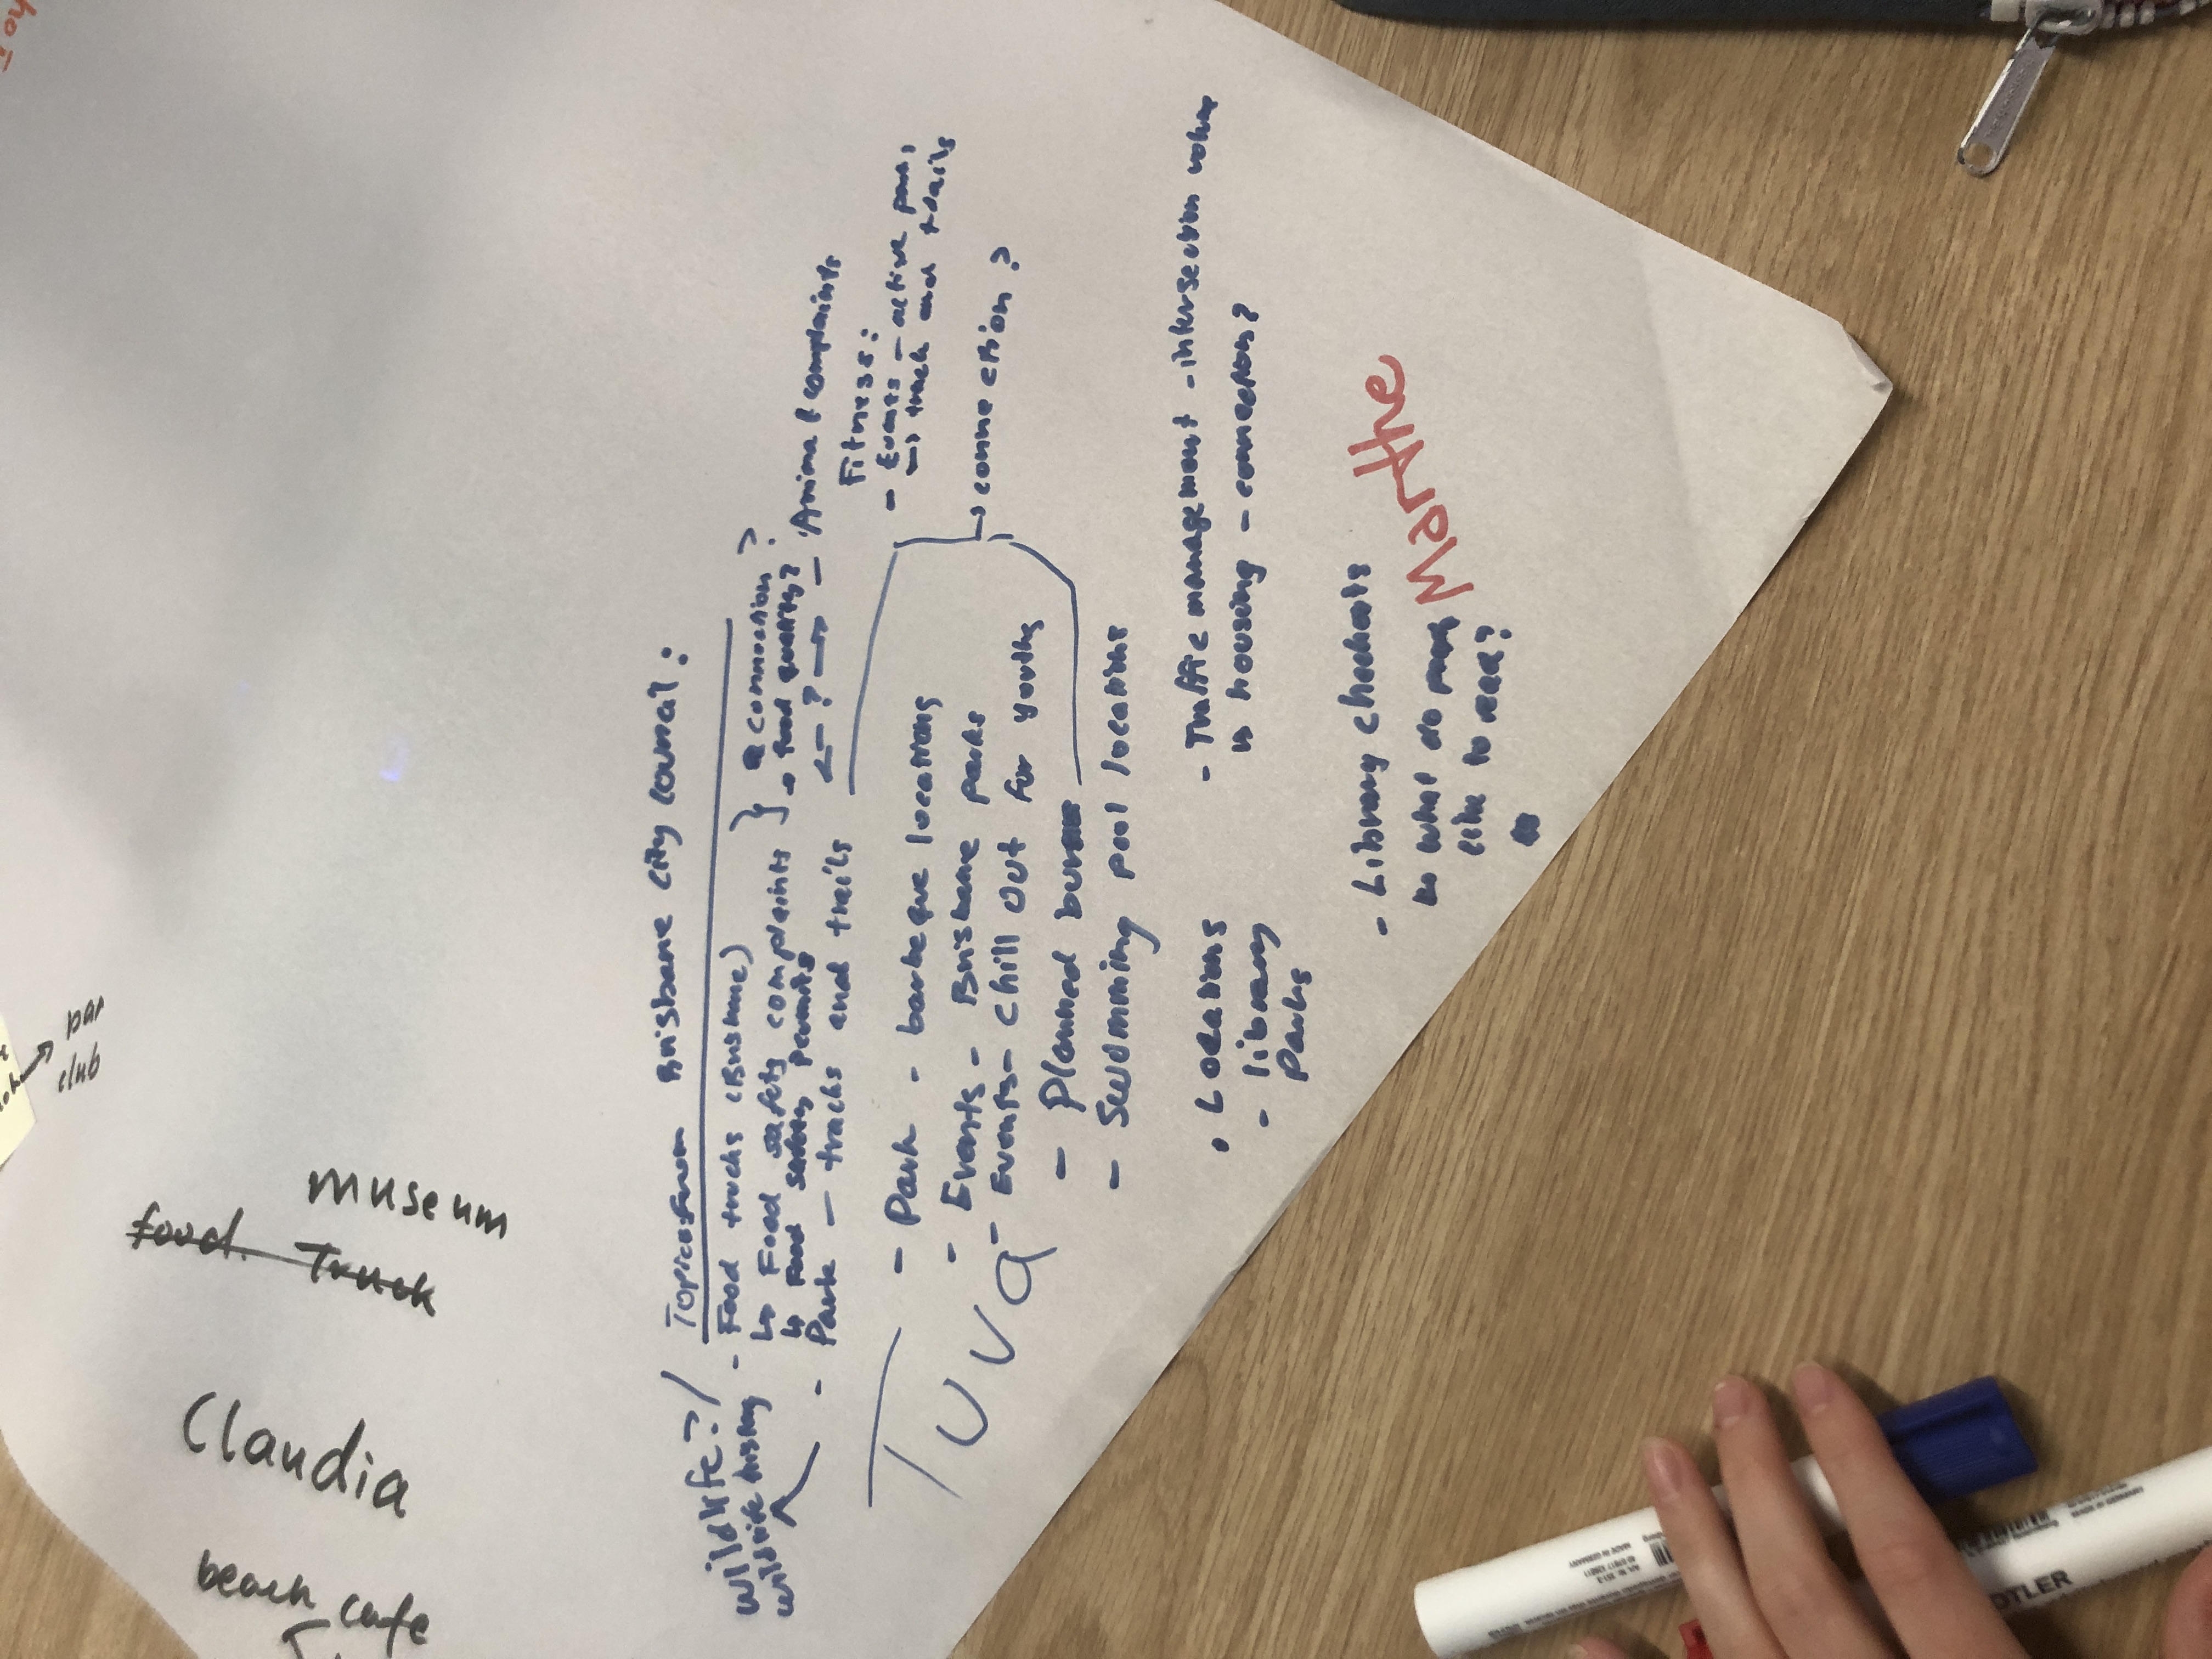 par
club
food truck
museum
Claudia
beach cafe
Topics from Brisbane City Council:
wildlife? /
wildlife history
- Food trucks (Brisbane)
↳ Food safety complaints
↳ Food safety permits
connection?
food quality?
- Park - tracks and trails
← ? → - Animal complaints
Fitness:
- Events - active parks
→ track and trails
- Park - barbeque locations
- Events - Brisbane parks
- Events - Chill Out for youths
→ connection?
- Planned burns
- Swimming pool locations
Tuva
• Locations
- library
Parks
- Traffic management - intersection volume
↳ housing - connection?
- Library checkouts
↳ what do
like to read?
Marthe
STAEDTLER